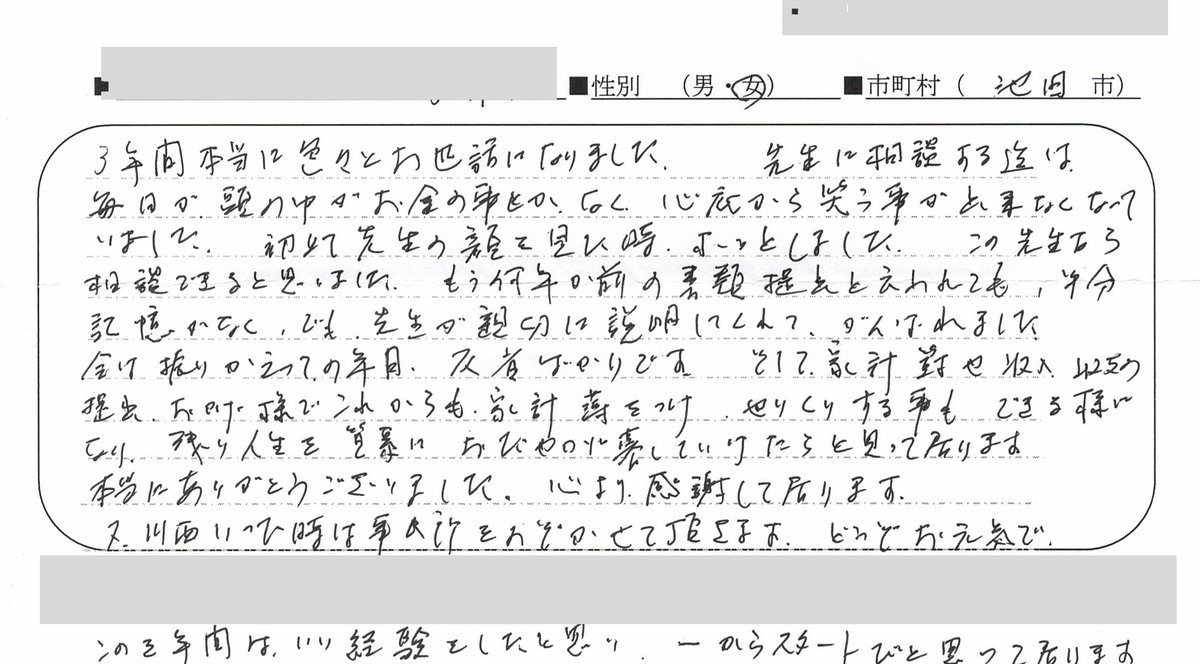 ■性別 (男・女) ■市町村 ( 池田 市)
3年間本当に色々とお世話になりました。 先生に相談する迄は
毎日が、頭の中がお金の事とか、なく、心底から笑う事が出来なくなって
いました。 初めて先生の顔を見た時、ホーッとしました。 この先生なら
相談できると思いました。 もう何年か前の書類提出と云われても、半分
記憶がなく、でも、先生が親切に説明してくれて、がんばれました
今は振りかえっての年月、反省ばかりです そして、家計簿や収入 収支の
提出、おかげ様でこれからも、家計簿をつけ、やりくりする事も できる様に
なり、残り人生を におだやかに暮していけたらと思って居ります
本当にありがとうございました。 心より、感謝して居ります。
又、川西いった時は事ム所をのぞかせて頂きます。 どうぞお元気で。
この三年間は、いい経験をしたと思い、一からスタートだと思って居ります